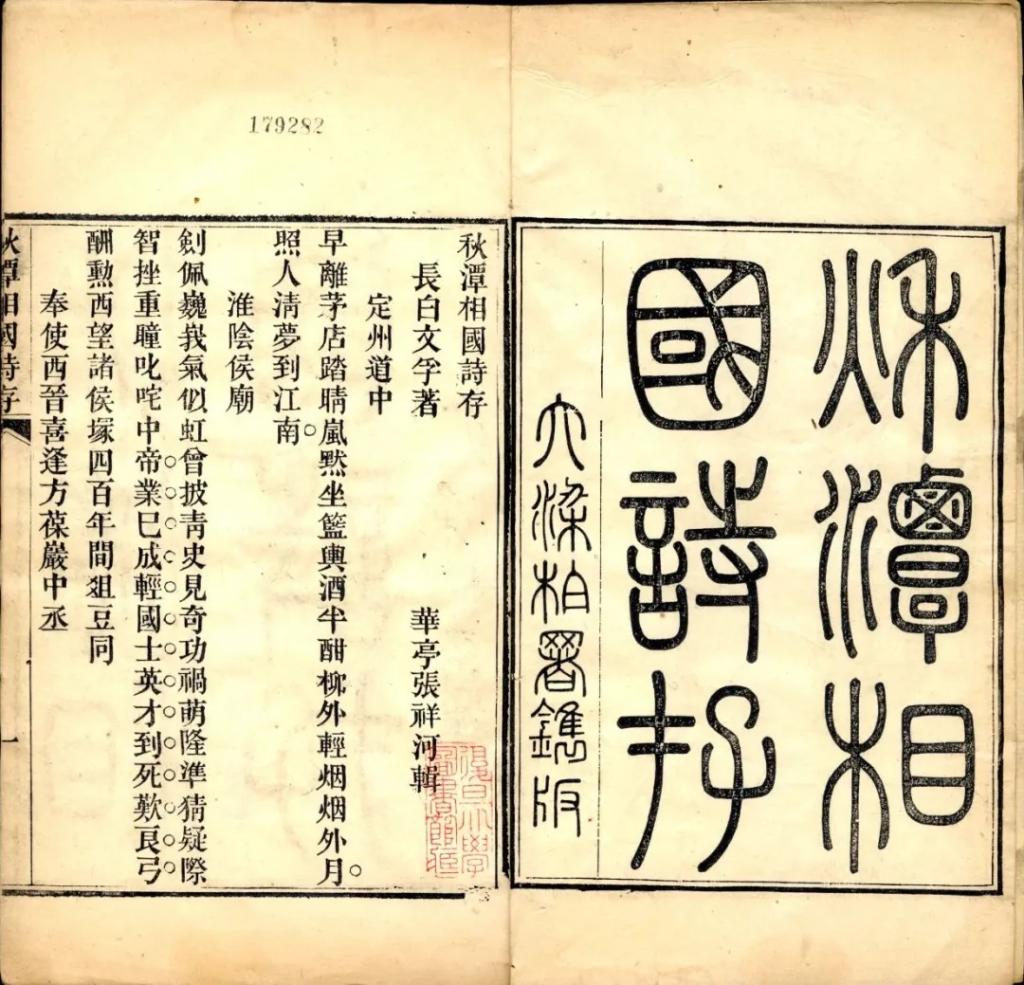 179282
秋潭相
國詩存
大梁柏署鐫版
秋潭相國詩存
長白文孚著　華亭張祥河輯
定州道中
早離茅店踏晴嵐黙坐籃輿酒半酣柳外輕烟烟外月
照人淸夢到江南
淮陰侯廟
劍佩巍峩氣似虹曾披靑史見奇功禍萌隆準猜疑際
智挫重瞳叱咤中帝業已成輕國士英才到死歎良弓
酬勳西望諸侯塚四百年間俎豆同
奉使西晉喜逢方葆巖中丞
秋潭相國詩存　一
復旦大學
圖書館藏